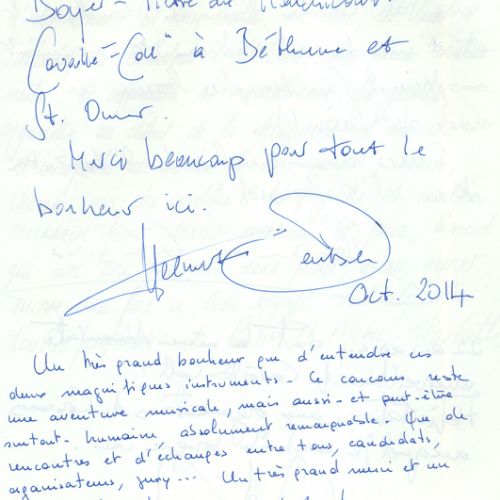 Cavaillé-Coll" à Béthune et
St. Omer.
Merci beaucoup pour tout le
bonheur ici.
Helmut Deutsch
Oct. 2014
Un très grand bonheur que d'entendre ces
deux magnifiques instruments - Ce concours reste
une aventure musicale, mais aussi - et peut-être
surtout - humaine, absolument remarquable. Que de
rencontres et d'échanges entre tous, candidats,
organisateurs, jury... Un très grand merci et un